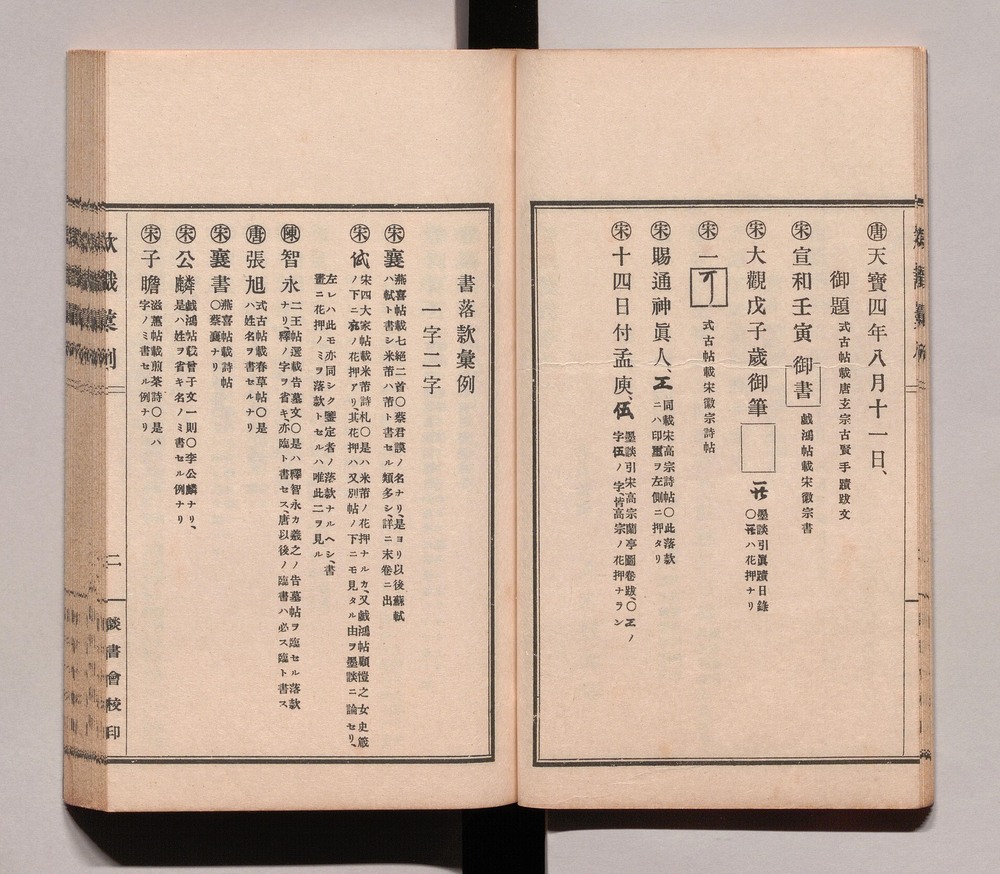 唐 天寶四年八月十一日、
御題 式古帖載唐玄宗古賢手蹟跋文
宋 宣和壬寅 御書 戲鴻帖載宋徽宗書
宋 大觀戊子歲御筆 墨談引眞蹟日錄
〇ハ花押ナリ
宋 一 式古帖載宋徽宗詩帖
宋 賜通神眞人、 同載宋高宗詩帖〇此落款
ニハ印璽ヲ左側ニ押タリ
宋 十四日付孟庾、 墨談引宋高宗蘭亭圖卷跋、〇 ノ
字 ノ字、皆高宗ノ花押ナラン
書落款彙例
一字二字
宋 襄 燕喜帖載七絕二首〇蔡君謨ノ名ナリ、是ヨリ以後蘇軾
ハ軾ト書シ米芾ハ芾ト書セル類多シ、詳ニ末卷ニ出
宋 宋四大家帖載米芾詩札〇是ハ米芾ノ花押ナルカ、又戲鴻帖顧愷之女史箴
ノ下ニ ノ花押アリ、其花押ハ又別帖ノ下ニモ見タル由ヲ墨談ニ論セリ、
左レハ此モ亦同シク鑒定者ノ落款ナルヘシ、書
畫ニ花押ノミヲ落款トセルハ唯此二ヲ見ル
陳 智永 二王帖選載告墓文〇是ハ釋智永カ羲之ノ告墓帖ヲ臨セル落款
ナリ、釋ノ字ヲ省キ、亦臨ト書セス、唐以後ノ臨書ハ必ス臨ト書ス
唐 張旭 式古帖載春草帖〇是
ハ姓名ヲ書セルナリ
宋 襄書 燕喜帖載詩帖
〇蔡襄ナリ
宋 公麟 戲鴻帖載曾子文一則〇李公麟ナリ、
是ハ姓ヲ省キ名ノミ書セル例ナリ
宋 子瞻 滋蕙帖載煎茶詩〇是ハ
字ノミ書セル例ナリ
款識彙例
二
談書會校印